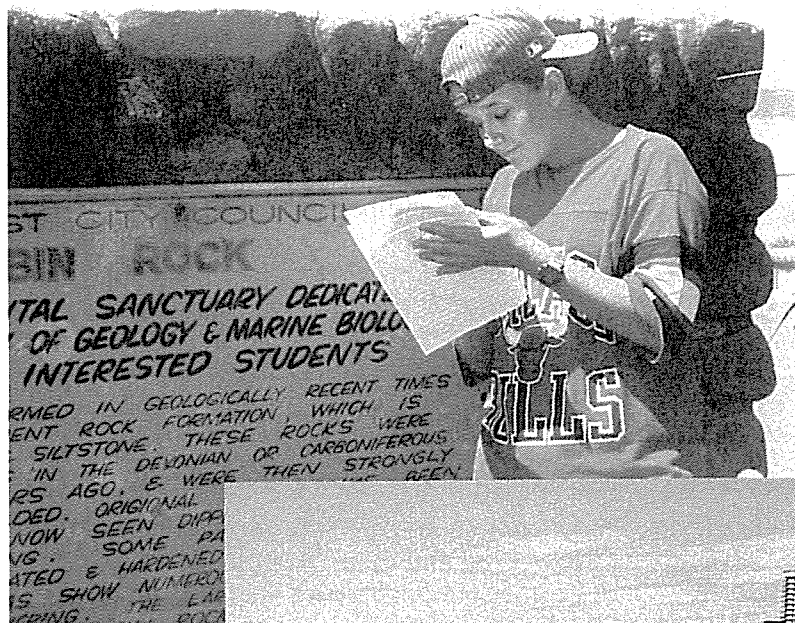 ST CITY COUNCIL
BIN ROCK
TAL SANCTUARY DEDICATE
OF GEOLOGY & MARINE BIOLO
INTERESTED STUDENTS
RMED IN GEOLOGICALLY RECENT TIMES
ENT ROCK FORMATION, WHICH IS
SILTSTONE. THESE ROCKS WERE
IN THE DEVONIAN OR CARBONIFEROUS
RS AGO, & WERE THEN STRONGLY
DED. ORIGIONAL BEEN
NOW SEEN DIPP
NG. SOME PA
ATED & HARDENED
S SHOW NUMEROU
ERING THE LAR
ROCK
BULLS